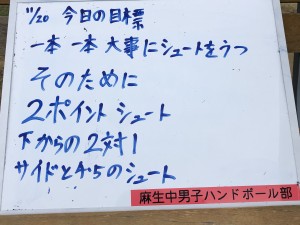 11/20 今日の目標
一本一本大事にシュートをうつ
そのために
2ポイントシュート
下からの2対1
サイドと45のシュート
麻生中男子ハンドボール部